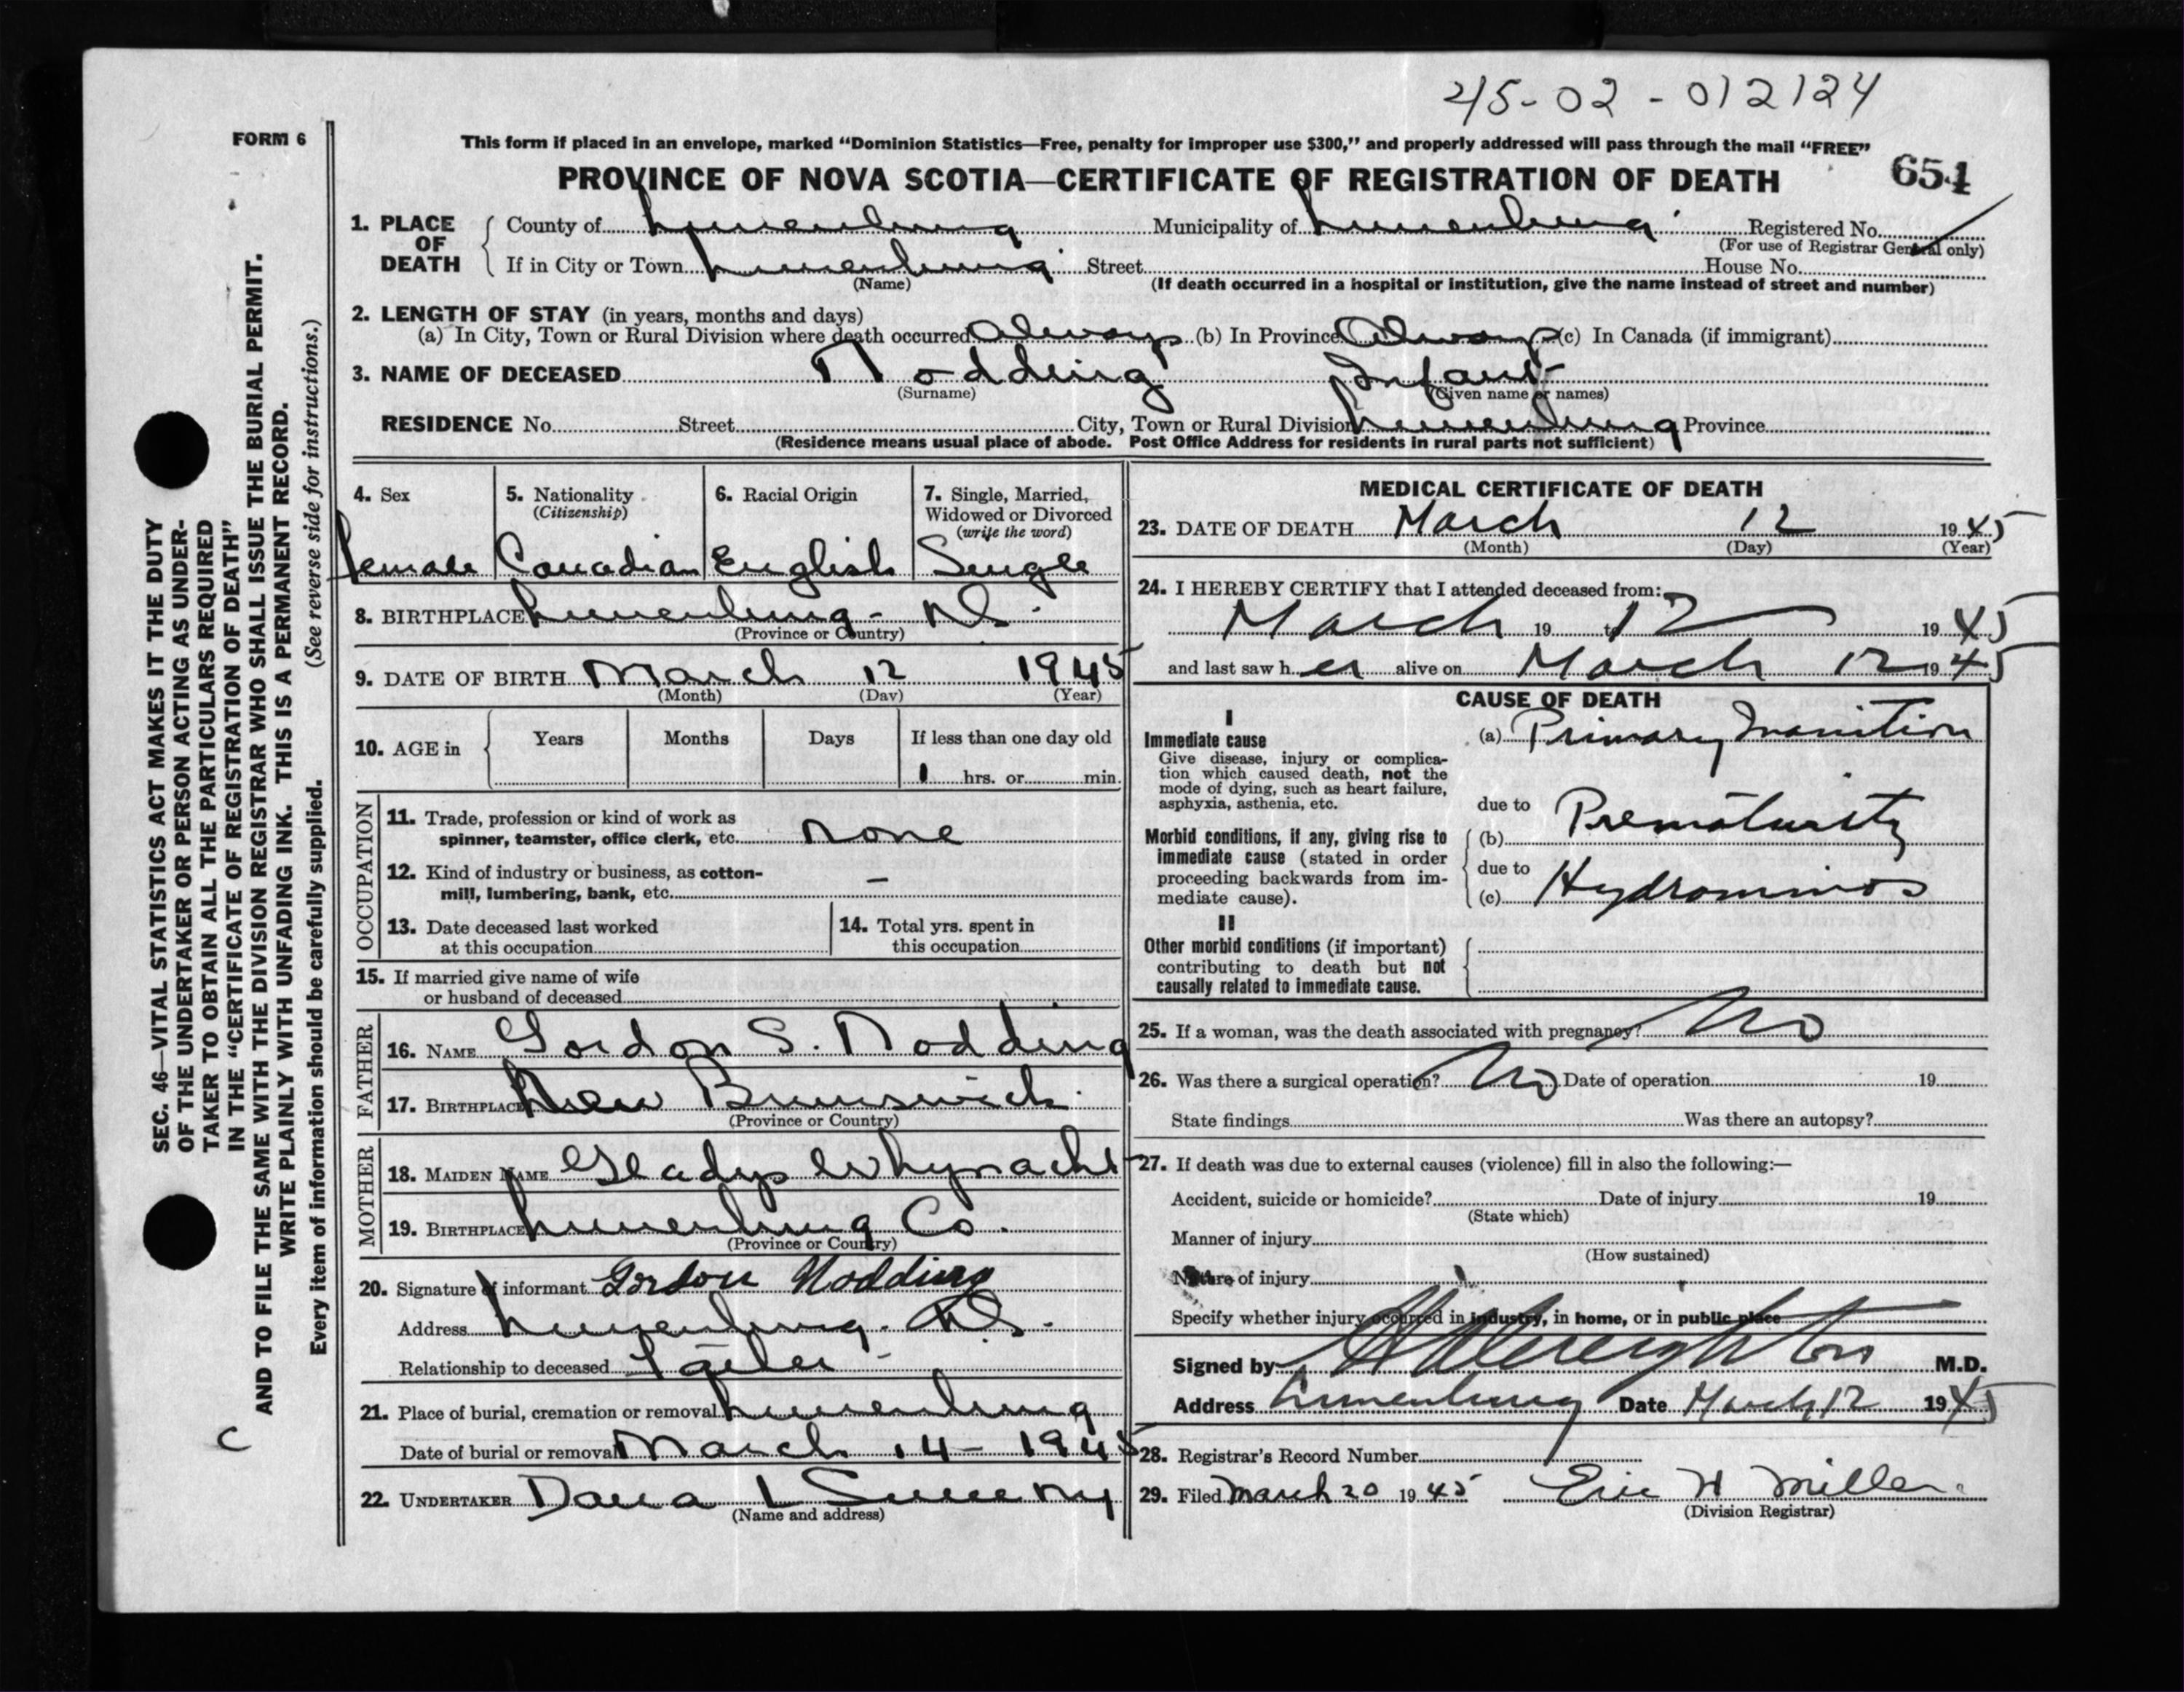 45-02-012124
FORM 6
This form if placed in an envelope, marked "Dominion Statistics—Free, penalty for improper use $300," and properly addressed will pass through the mail "FREE"
PROVINCE OF NOVA SCOTIA—CERTIFICATE OF REGISTRATION OF DEATH 654
1. PLACE OF DEATH County of Lunenburg Municipality of Lunenburg Registered No.
(For use of Registrar General only)
If in City or Town Lunenburg Street House No.
(Name) (If death occurred in a hospital or institution, give the name instead of street and number)
2. LENGTH OF STAY (in years, months and days)
(a) In City, Town or Rural Division where death occurred Always (b) In Province Always (c) In Canada (if immigrant)
3. NAME OF DECEASED Nodding Infant
(Surname) (Given name or names)
RESIDENCE No. Street City, Town or Rural Division Lunenburg Province
(Residence means usual place of abode. Post Office Address for residents in rural parts not sufficient)
4. Sex 5. Nationality (Citizenship) 6. Racial Origin 7. Single, Married, Widowed or Divorced (write the word)
Female Canadian English Single
8. BIRTHPLACE Lunenburg - N.S.
(Province or Country)
9. DATE OF BIRTH March 12 1945
(Month) (Day) (Year)
10. AGE in Years Months Days If less than one day old
1 hrs. or min.
OCCUPATION
11. Trade, profession or kind of work as
spinner, teamster, office clerk, etc. none
12. Kind of industry or business, as cotton-
mill, lumbering, bank, etc. –
13. Date deceased last worked
at this occupation
14. Total yrs. spent in
this occupation
15. If married give name of wife
or husband of deceased
FATHER
16. NAME Gordon S. Nodding
17. BIRTHPLACE New Brunswick
(Province or Country)
MOTHER
18. MAIDEN NAME Gladys Whynacht
19. BIRTHPLACE Lunenburg Co.
(Province or Country)
20. Signature of informant Gordon Nodding
Address Lunenburg. N.S.
Relationship to deceased Father -
21. Place of burial, cremation or removal Lunenburg
Date of burial or removal March 14 - 1945
22. UNDERTAKER Dana L Sweeny
(Name and address)
MEDICAL CERTIFICATE OF DEATH
23. DATE OF DEATH March 12 1945
(Month) (Day) (Year)
24. I HEREBY CERTIFY that I attended deceased from:
March 19 to 12 1945
and last saw her alive on March 12 1945
CAUSE OF DEATH
I
Immediate cause (a) Primary Inanition
Give disease, injury or complica-
tion which caused death, not the
mode of dying, such as heart failure,
asphyxia, asthenia, etc.
due to
Morbid conditions, if any, giving rise to (b) Prematurity
immediate cause (stated in order
proceeding backwards from im- due to
mediate cause). (c) Hydramnios
II
Other morbid conditions (if important)
contributing to death but not
causally related to immediate cause.
25. If a woman, was the death associated with pregnancy? No
26. Was there a surgical operation? No Date of operation 19
State findings Was there an autopsy?
27. If death was due to external causes (violence) fill in also the following:—
Accident, suicide or homicide? Date of injury 19
(State which)
Manner of injury
(How sustained)
Nature of injury
Specify whether injury occurred in industry, in home, or in public place
Signed by Creighton M.D.
Address Lunenburg Date March 12 1945
28. Registrar's Record Number
29. Filed March 20 1945 Eric H Miller
(Division Registrar)
SEC. 46—VITAL STATISTICS ACT MAKES IT THE DUTY
OF THE UNDERTAKER OR PERSON ACTING AS UNDER-
TAKER TO OBTAIN ALL THE PARTICULARS REQUIRED
IN THE "CERTIFICATE OF REGISTRATION OF DEATH"
AND TO FILE THE SAME WITH THE DIVISION REGISTRAR WHO SHALL ISSUE THE BURIAL PERMIT.
WRITE PLAINLY WITH UNFADING INK. THIS IS A PERMANENT RECORD.
Every item of information should be carefully supplied. (See reverse side for instructions.)
C